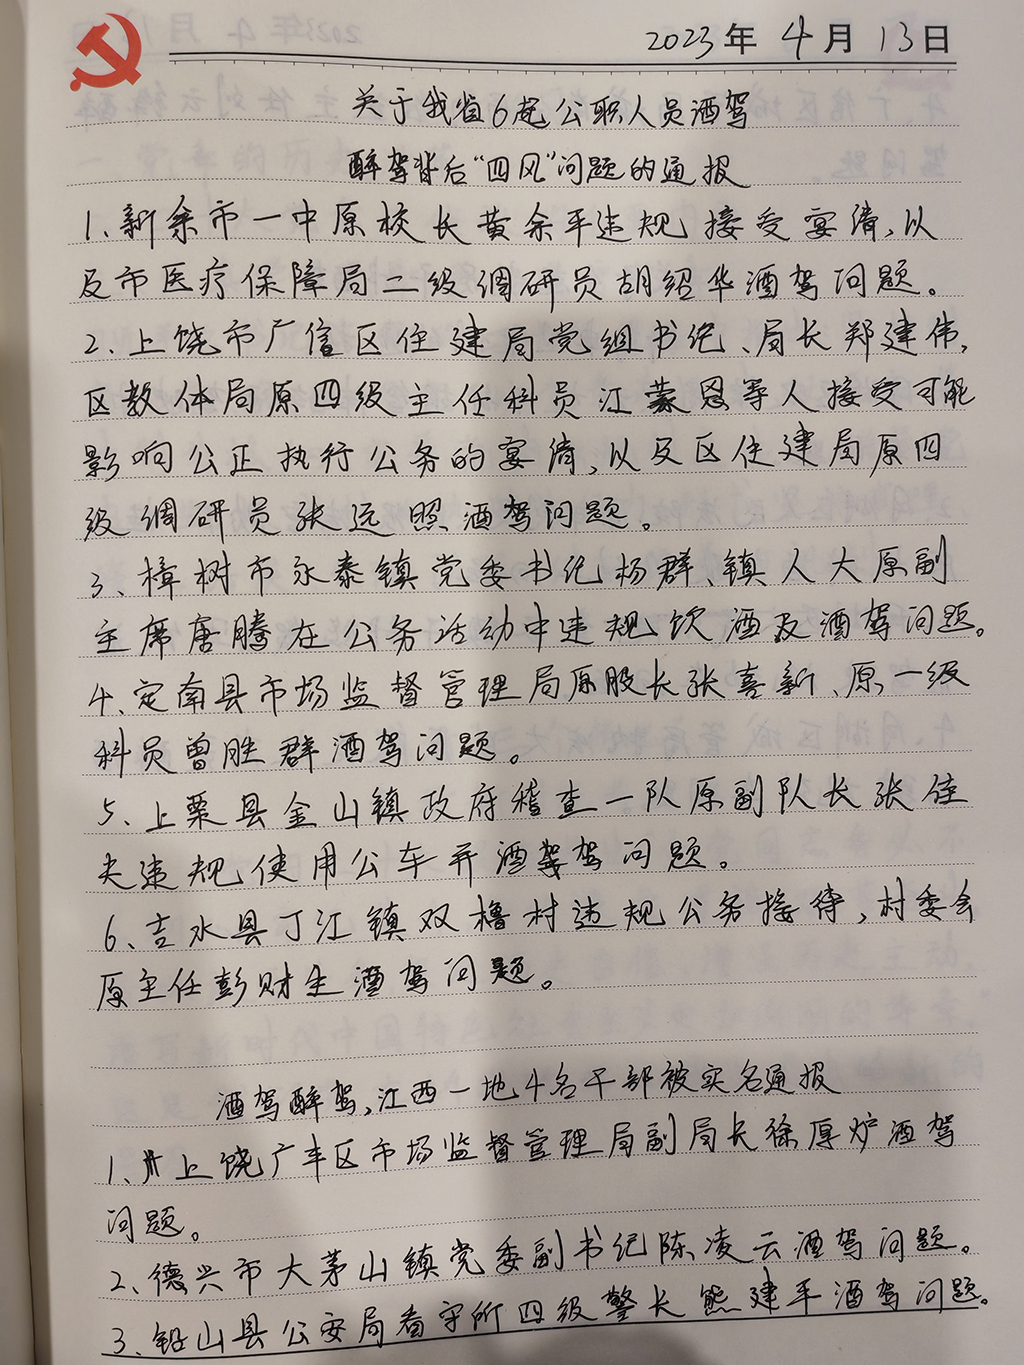 2023年 4月 13日
关于我省6起公职人员酒驾
醉驾背后“四风”问题的通报
1、新余市一中原校长黄余平违规接受宴请,以
及市医疗保障局二级调研员胡绍华酒驾问题。
2、上饶市广信区住建局党组书记、局长郑建伟,
区教体局原四级主任科员江蒙恩等人接受可能
影响公正执行公务的宴请,以及区住建局原四
级调研员张远照酒驾问题。
3、樟树市永泰镇党委书记杨群、镇人大原副
主席唐腾在公务活动中违规饮酒及酒驾问题。
4、定南县市场监督管理局原股长张喜新、原一级
科员曾胜群酒驾问题。
5、上栗县金山镇政府稽查一队原副队长张佳
夫违规使用公车并酒驾问题。
6、吉水县丁江镇双橹村违规公务接待,村委会
原主任彭财生酒驾问题。
酒驾醉驾,江西一地4名干部被实名通报
1、上饶广丰区市场监督管理局副局长徐厚炉酒驾
问题。
2、德兴市大茅山镇党委副书记陈凌云酒驾问题。
3、铅山县公安局看守所四级警长熊建平酒驾问题。